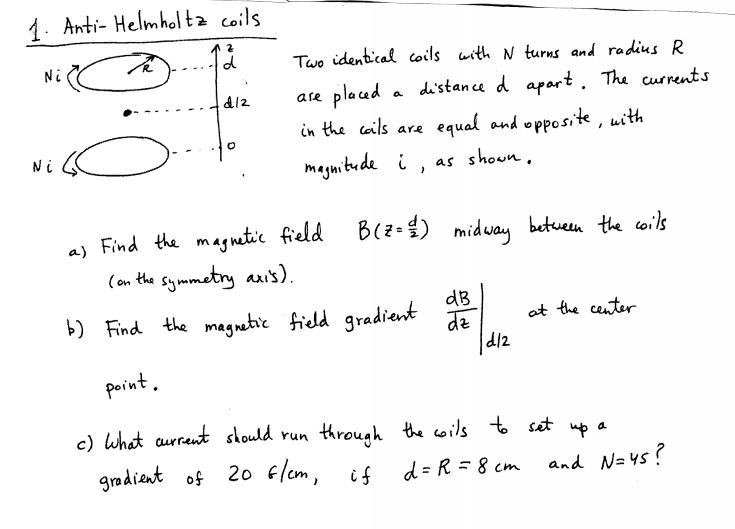 1. Anti-Helmholtz coils
z
d
R
Ni
d/2
0
Ni
Two identical coils with N turns and radius R
are placed a distance d apart. The currents
in the coils are equal and opposite, with
magnitude i, as shown.
a) Find the magnetic field B(z=d/2) midway between the coils
(on the symmetry axis).
b) Find the magnetic field gradient dB/dz|d/2 at the center
point.
c) What current should run through the coils to set up a
gradient of 20 G/cm, if d=R=8 cm and N=45?